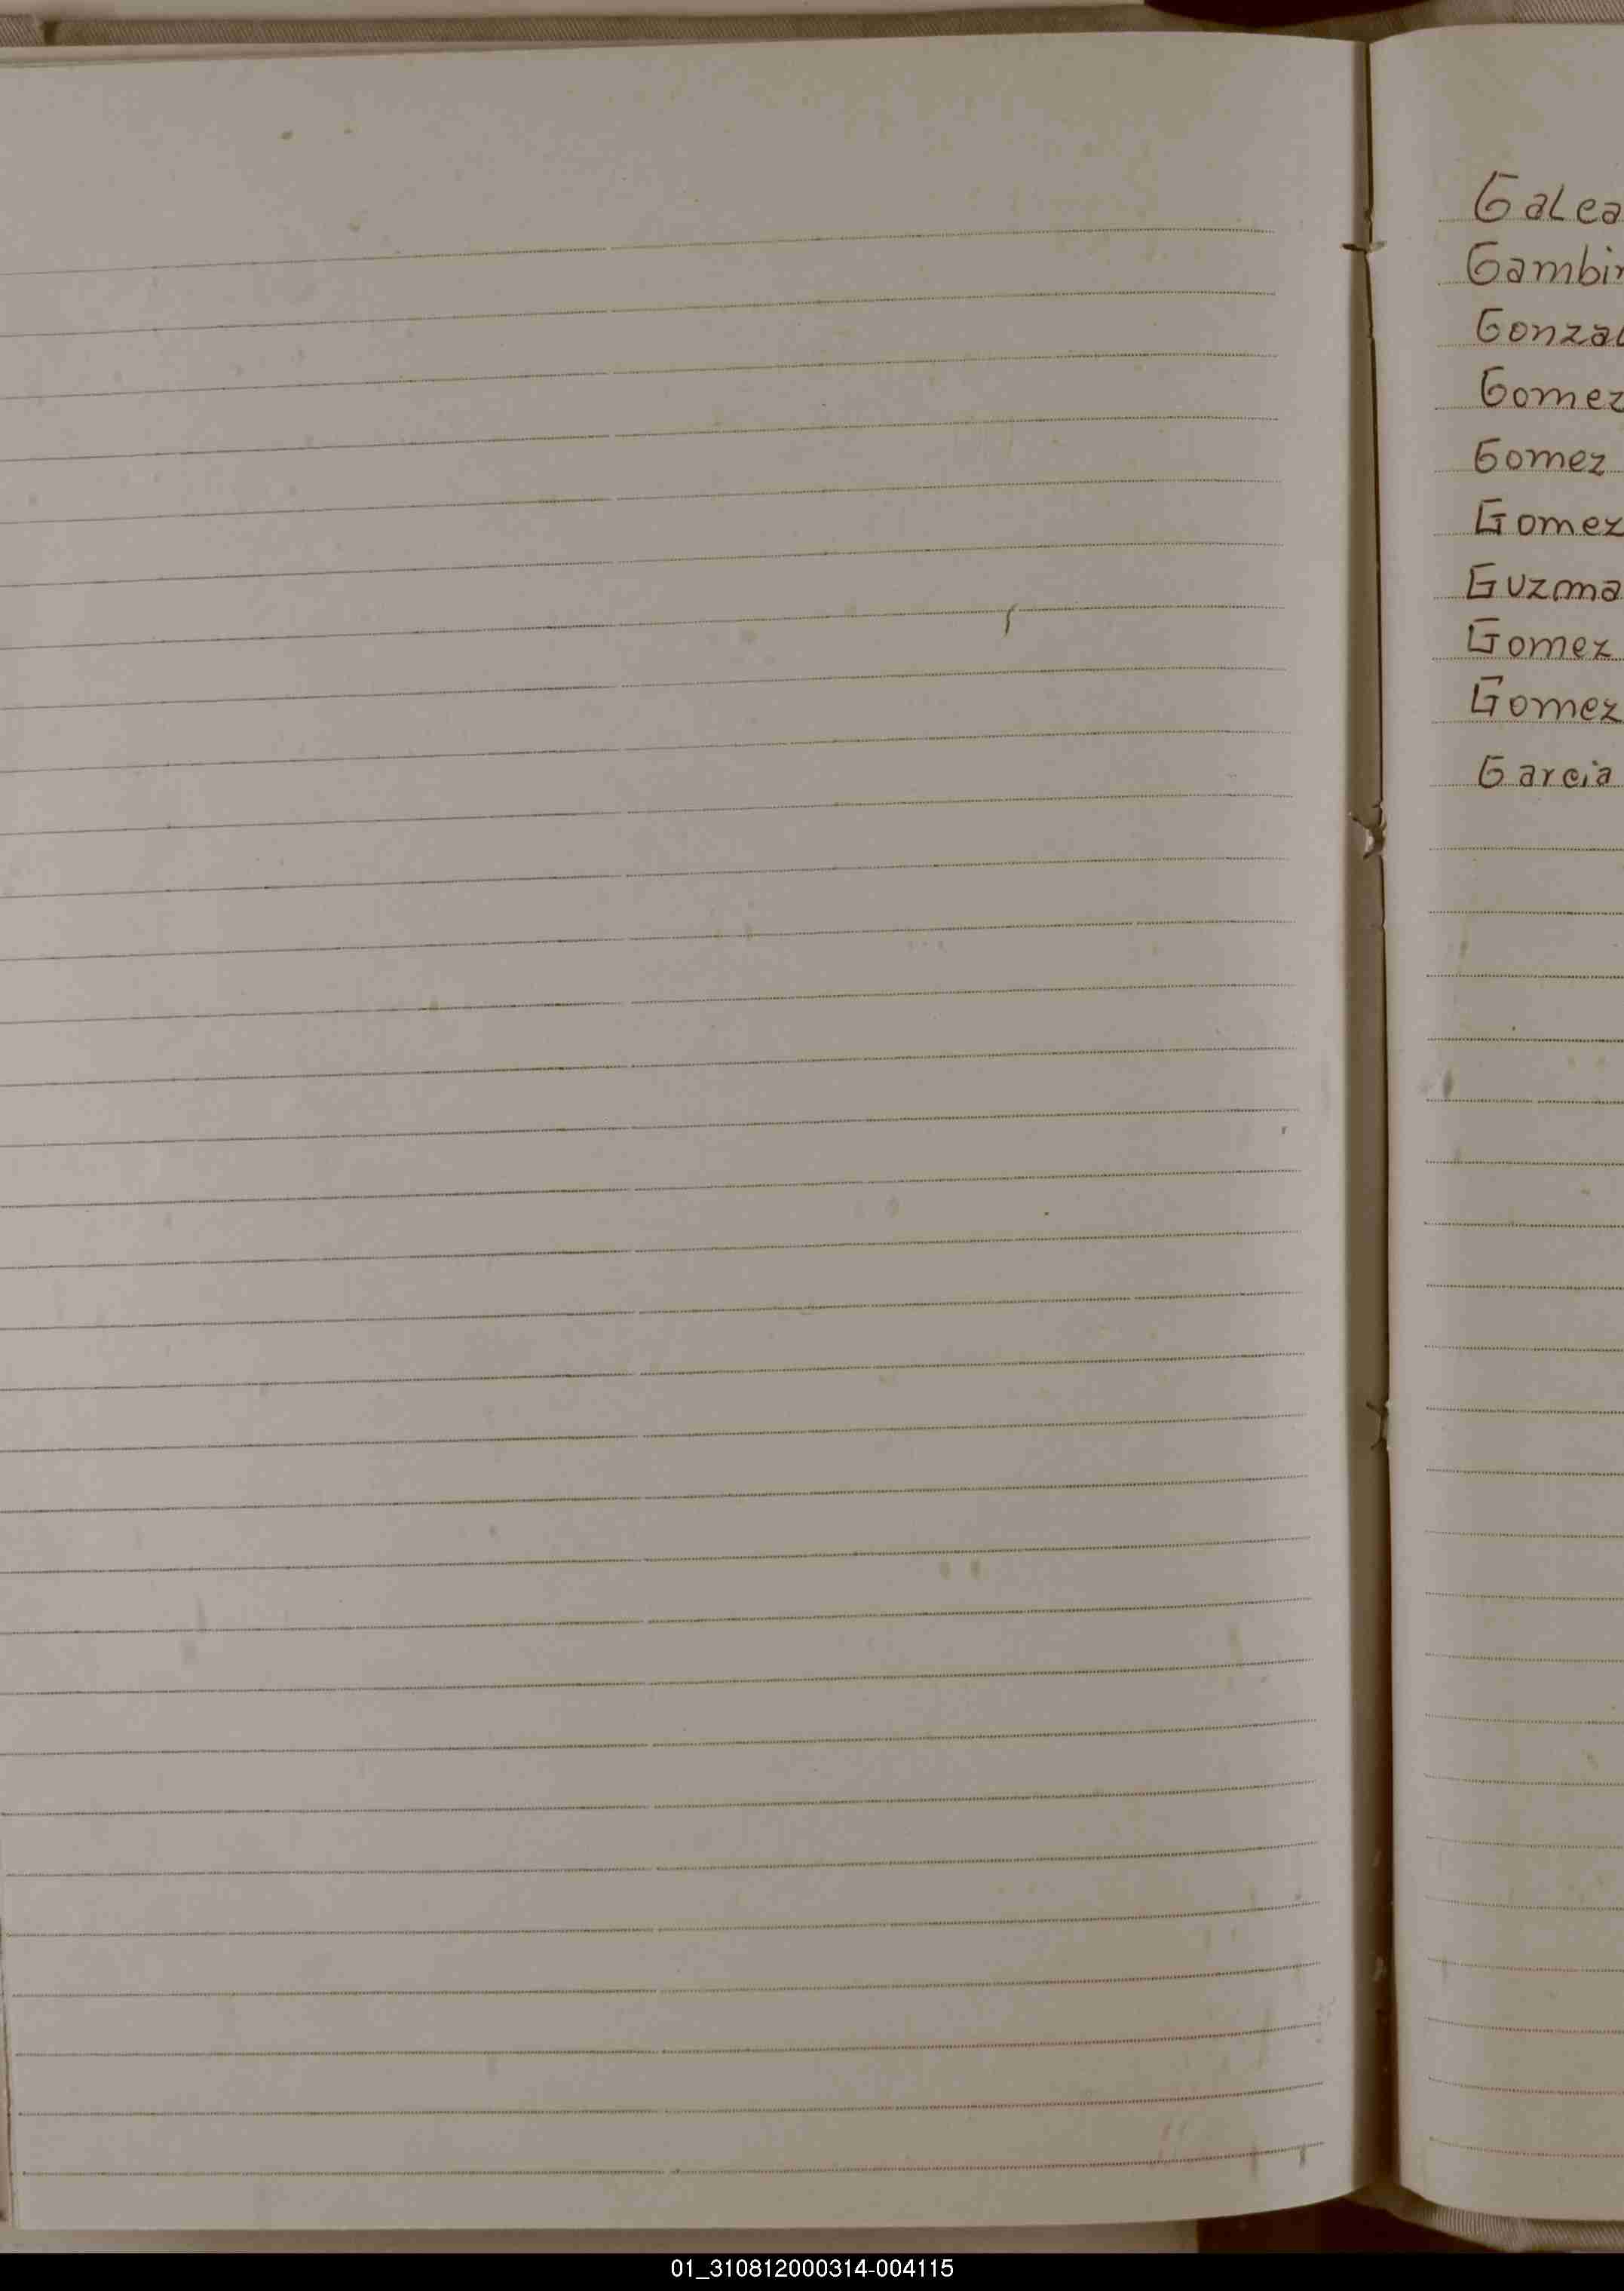 Galea
Gambin
Gonzal
Gomez
Gomez
Gomez
Guzma
Gomez
Gomez
Garcia
01_310812000314-004115